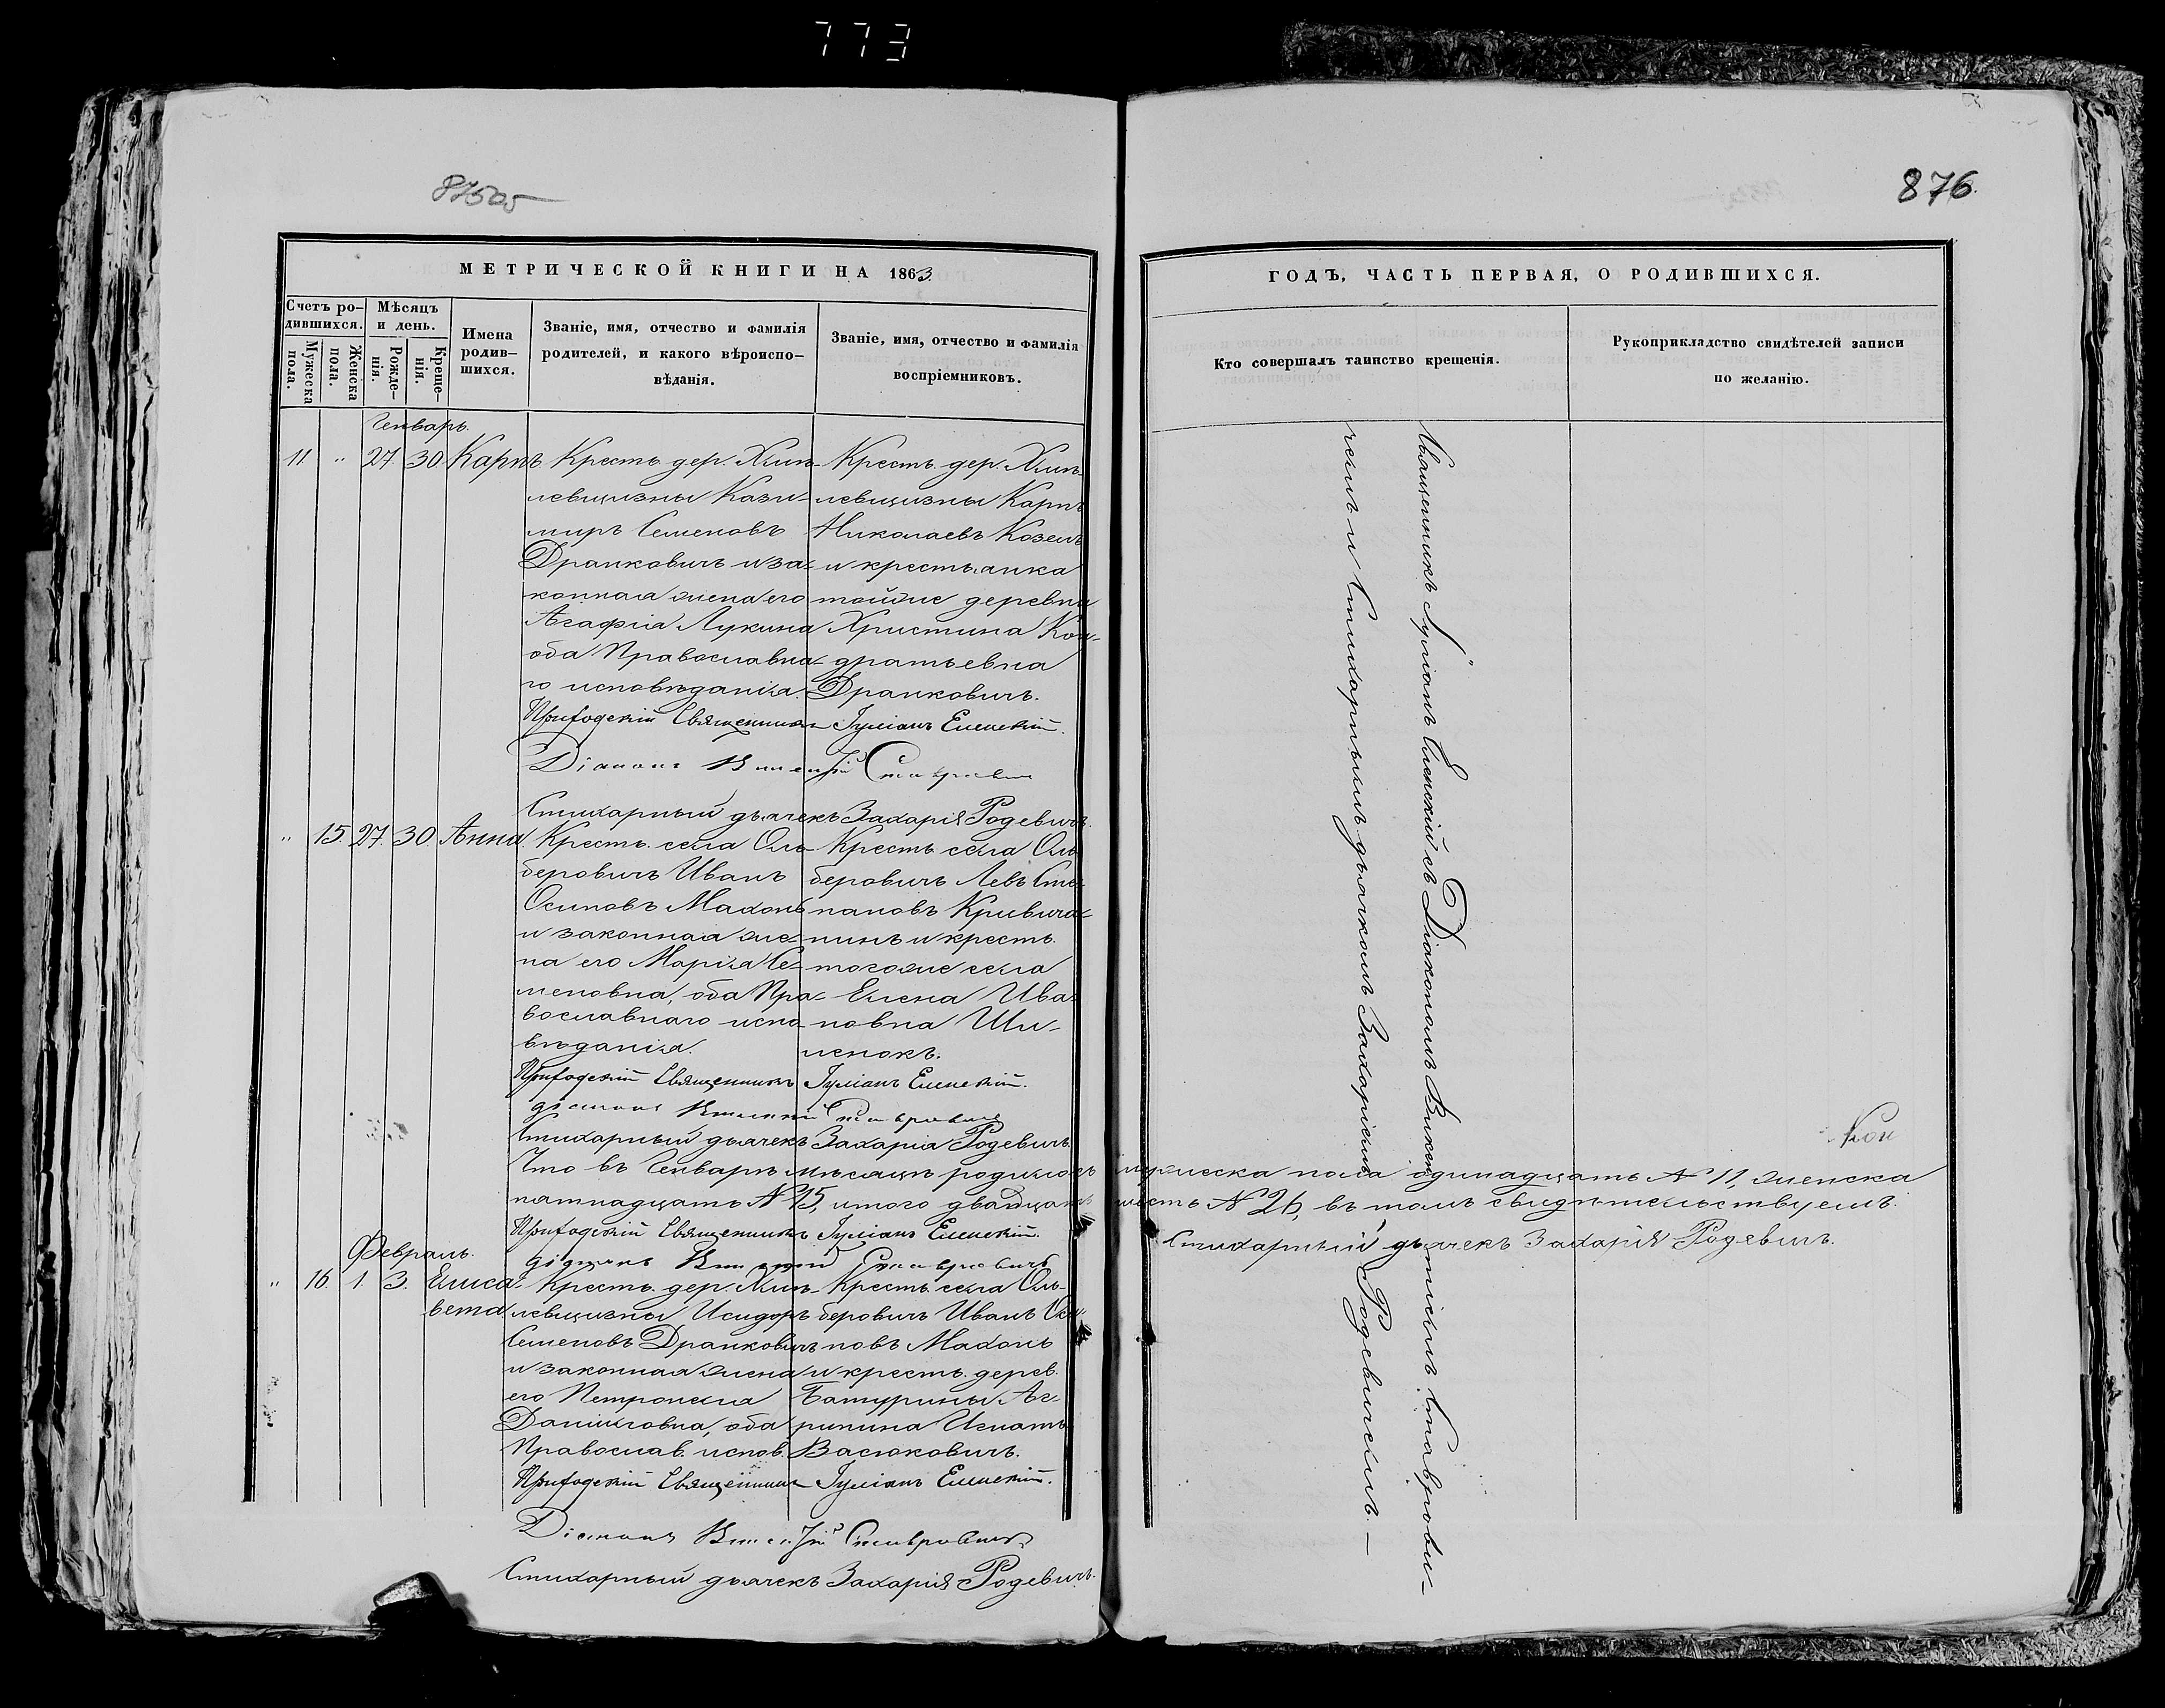 773
875об
876.
МЕТРИЧЕСКОЙ КНИГИ НА 1863
Счетъ ро-
дившихся.
Мужеска
пола.
Женска
пола.
Мѣсяцъ
и день.
Рожде-
нія.
Креще-
нія.
Имена
родив-
шихся.
Званіе, имя, отчество и фамилія
родителей, и какого вѣроиспо-
вѣданія.
Званіе, имя, отчество и фамилія
воспріемниковъ.
Генварь.
11 " 27. 30 Карпъ.
Крестъ. дер. Хлип-
левщизны Кази-
миръ Семеновъ
Драпковичъ и за-
конная жена его
Агафія Лукина
оба Православна-
го исповѣданія.
Крестъ. дер. Хлип-
левщизны Карпъ
Николаевъ Козелъ
и крестьянка
тойже деревни
Христина Кон-
дратьевна
Драпковичъ.
Приходскій Священникъ Іуліанъ Еленскій.
Діаконъ Викентій Ставровичъ
Стихарный дьячекъ Захарія Родевичъ.
" 15. 27. 30 Анна
Крестъ. села Оль-
беровичъ Иванъ
Осиповъ Махонь
и законная же-
на его Марія Се-
меновна, оба Пра-
вославнаго испо-
вѣданія.
Крестъ. села Оль-
беровичъ Левъ Сте-
пановъ Кривича-
нинъ и крестъ.
тогоже села
Елена Ива-
новна Ши-
ленокъ.
Приходскій Священникъ Іуліанъ Еленскій.
діаконъ Викентій Ставровичъ
Стихарный дьячекъ Захарія Родевичъ.
Что въ Генварѣ мѣсяцѣ родилось мужеска пола одинадцать N 11, женска
пятнадцать N 15, итого двадцать шесть N 26, въ томъ свидѣтельствуемъ.
Приходскій Священникъ Іуліанъ Еленскій.
діаконъ Викентій Ставровичъ
Стихарный дьячекъ Захарія Родевичъ.
Февраль.
" 16. 1. 3. Елиса-
вета
Крестъ. дер. Хлип-
левщизны Исидоръ
Семеновъ Драпковичъ
и законная жена
его Петронела
Даниловна, оба
Православ. испов.
Крестъ. села Оль-
беровичъ Иванъ Оси-
повъ Махонь
и крестъ. дерев.
Батурины Аг-
рипина Игнатъ.
Васюковичъ.
Приходскій Священникъ Іуліанъ Еленскій.
Діаконъ Викентій Ставровичъ
Стихарный дьячекъ Захарія Родевичъ.
ГОДЪ, ЧАСТЬ ПЕРВАЯ, О РОДИВШИХСЯ.
Кто совершалъ таинство крещенія.
Рукоприкладство свидѣтелей записи
по желанію.
Священникъ Іуліанъ Еленскій съ Діакономъ Викентіемъ Ставрови-
чемъ и Стихарнымъ дьячкомъ Захаріемъ Родевичемъ. —